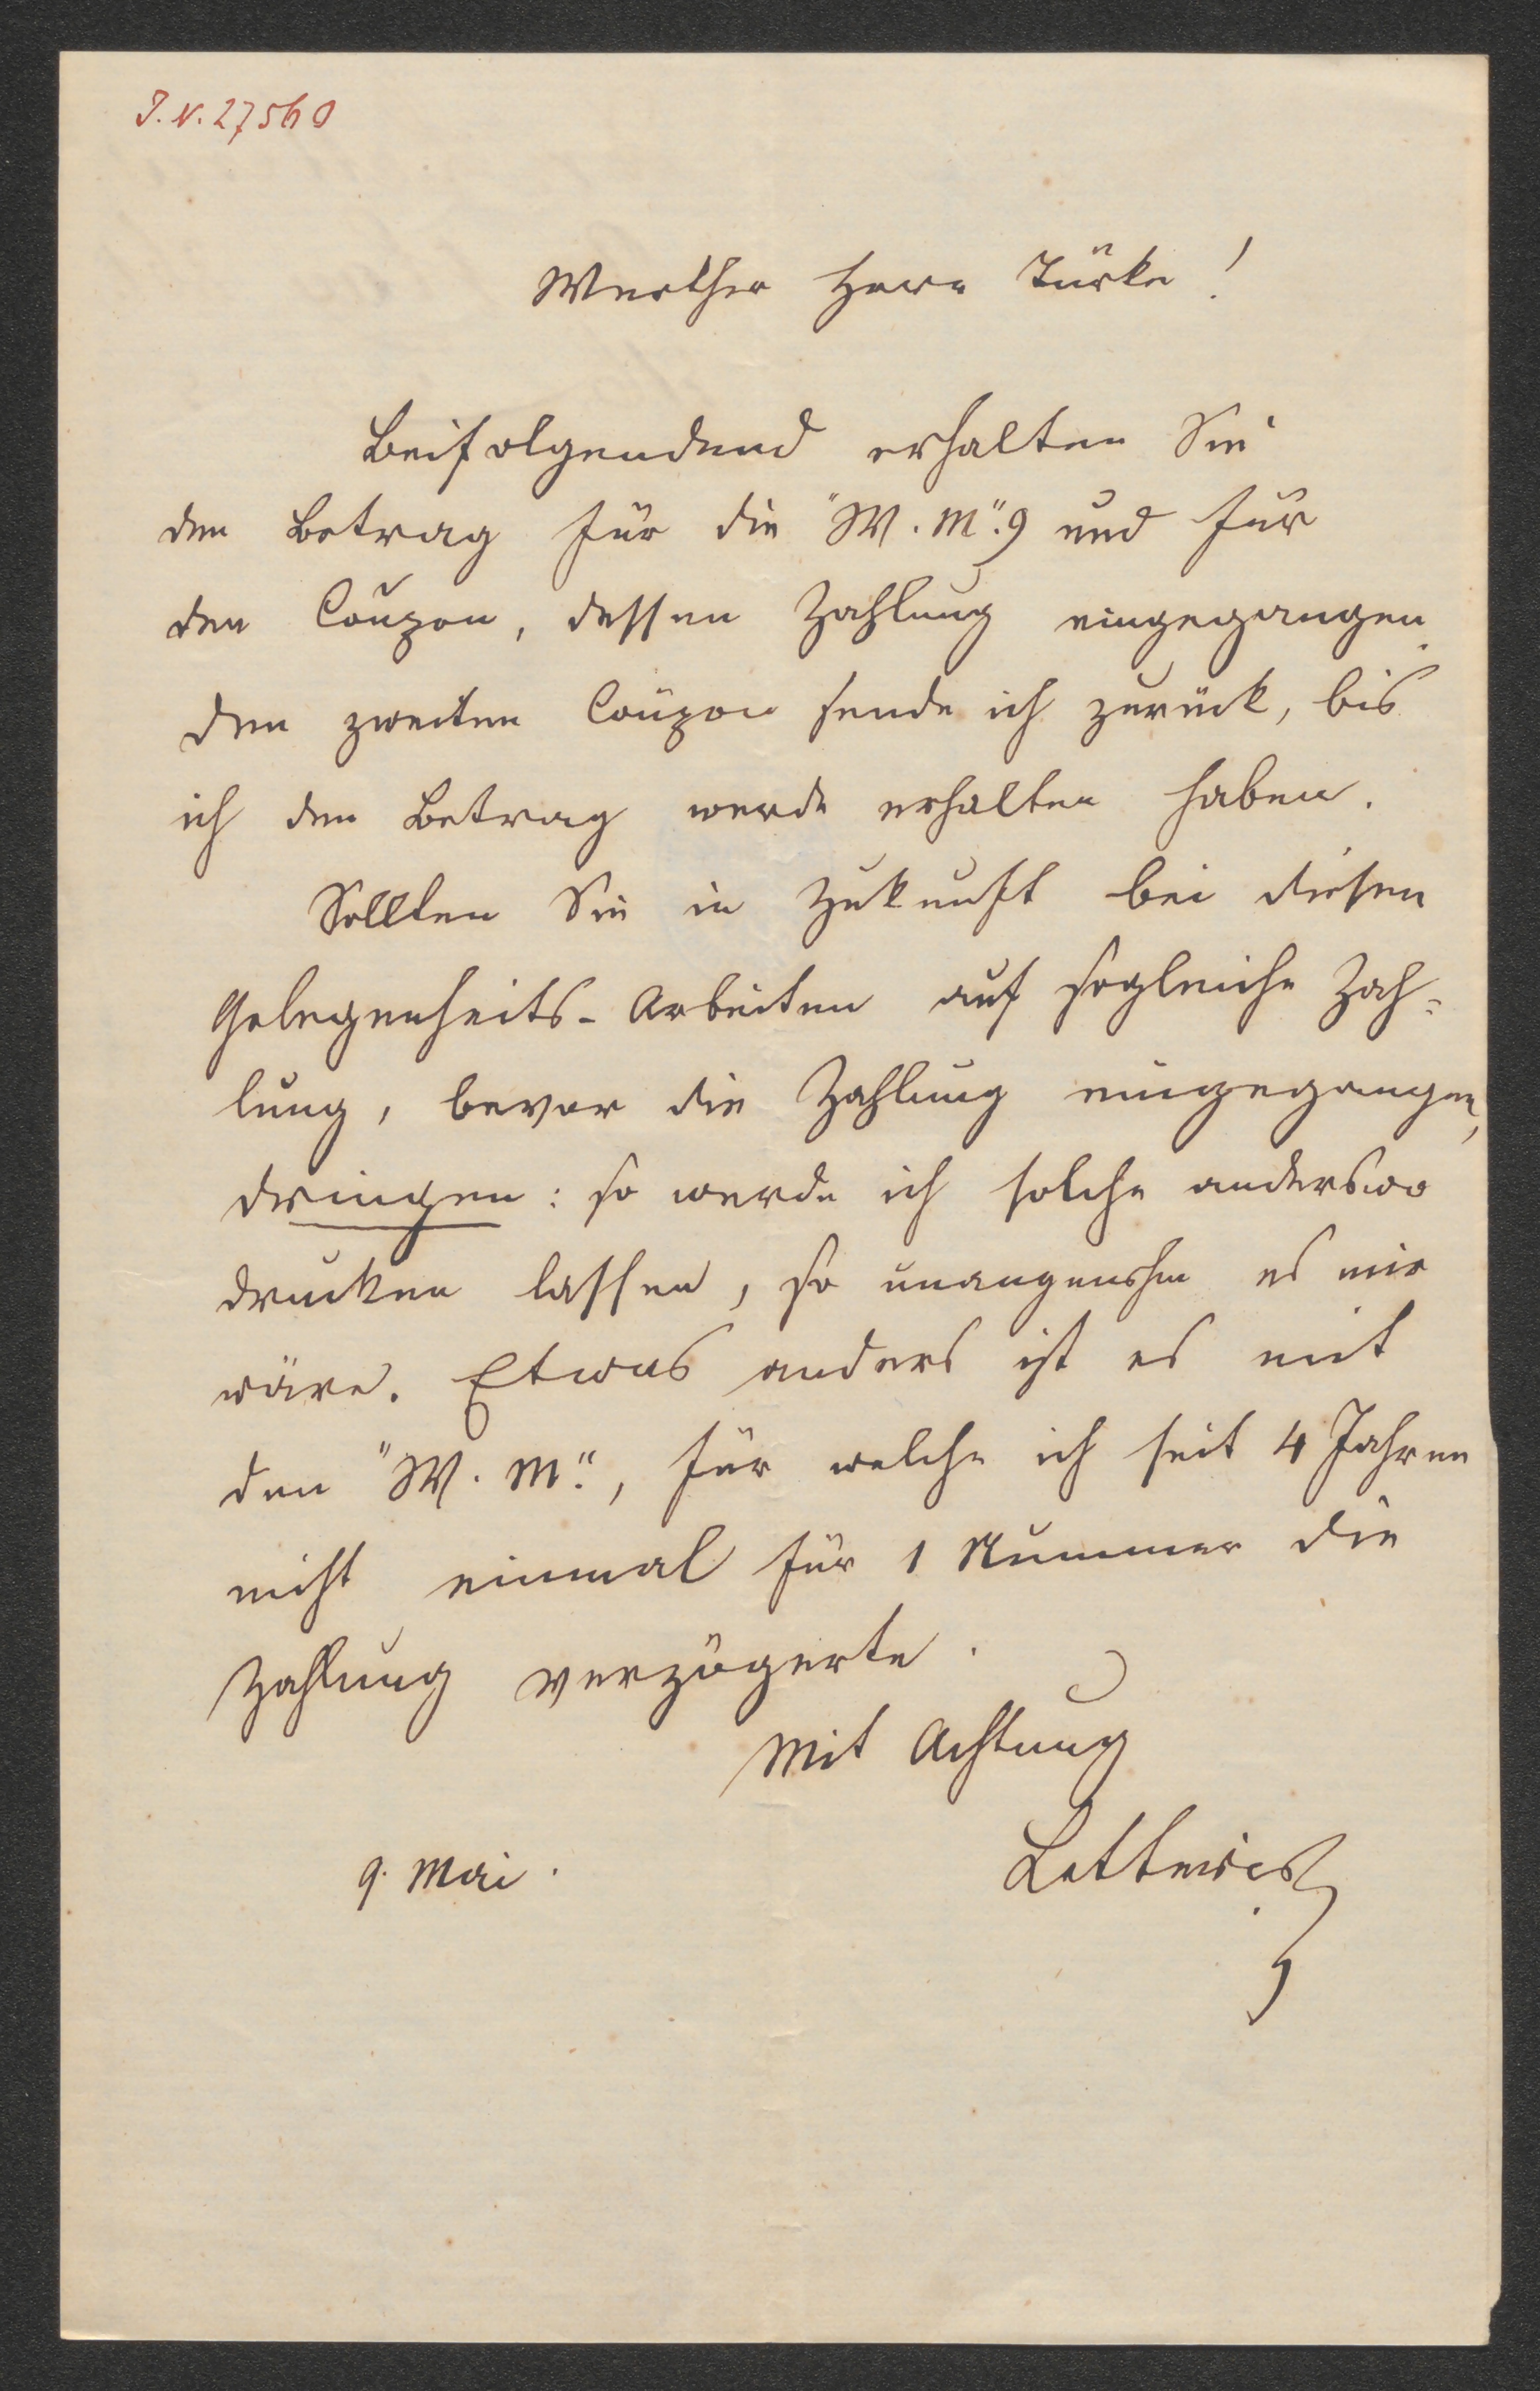 I.N. 27560
Werther Herr Türke!
Beifolgendend erhalten Sie
den Betrag für die "W. M". 9 und für
den Coupon, dessen Zahlung eingegangen.
den zweiten Coupon sende ich zurück, bis
ich den Betrag werde erhalten haben.
Sollten Sie in Zukunft bei diesen
Gelegenheits-Arbeiten auf sogleiche Zah=
lung, bevor die Zahlung eingegangen,
dringen: so werde ich solche anderswo
drucken lassen, so unangenehm es mir
wäre. Etwas anders ist es mit
den "W. M.", für welche ich seit 4 Jahren
nicht einmal für 1 Nummer die
Zahlung verzögerte.
Mit Achtung
9. Mai.